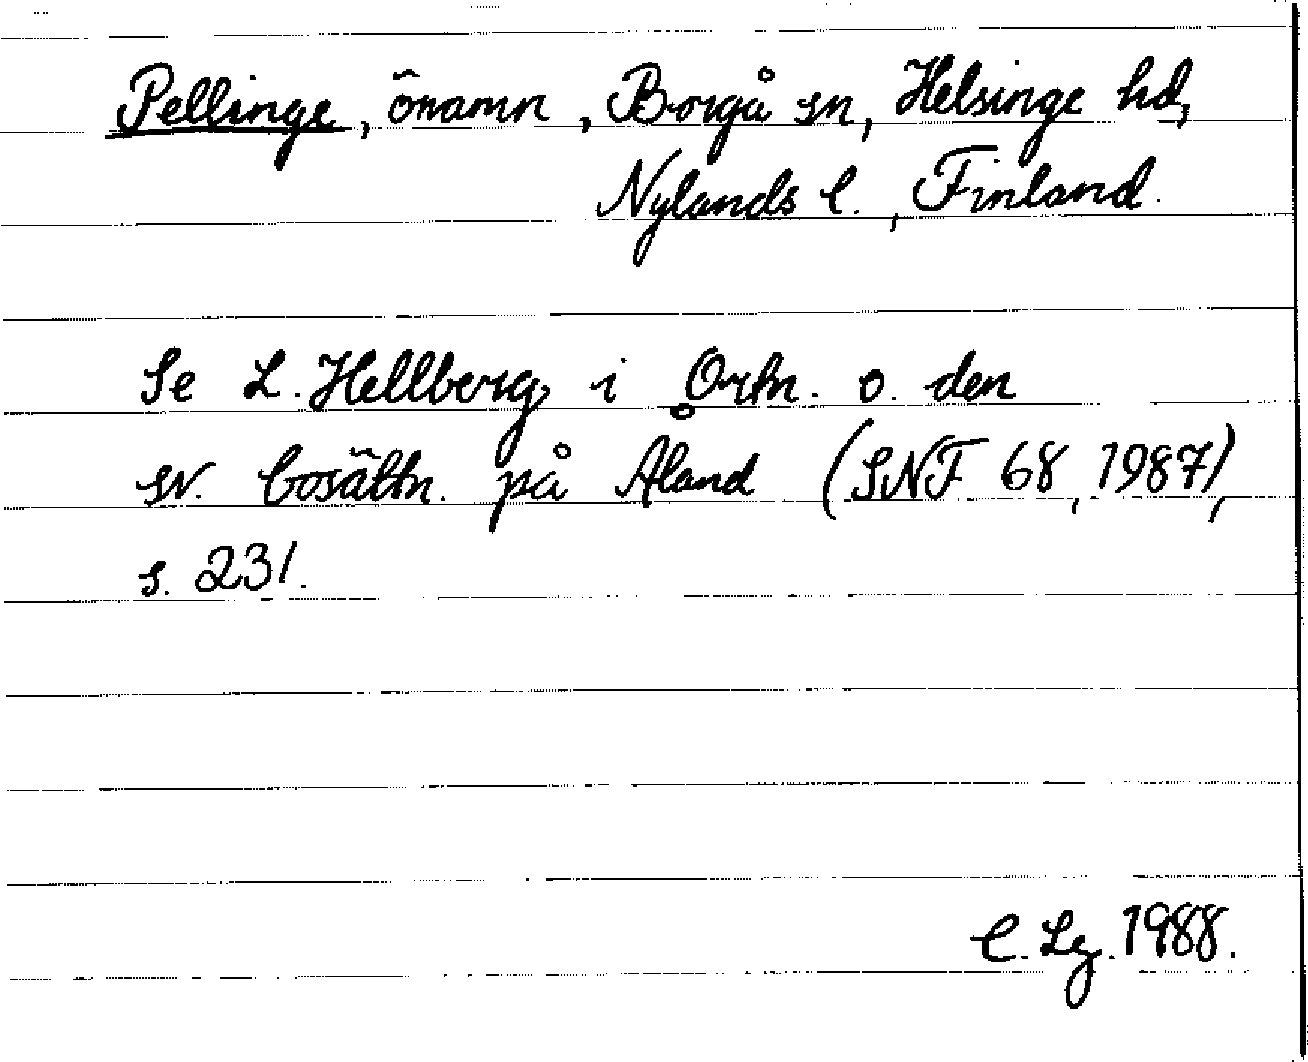 Pellinge, önamn, Borgå sn, Helsinge hd,
Nylands l., Finland.
Se L. Hellberg i Ortn. o. den
sv. bosättn. på Åland (SNF 68, 1987),
s. 231.
C. Lg. 1988.